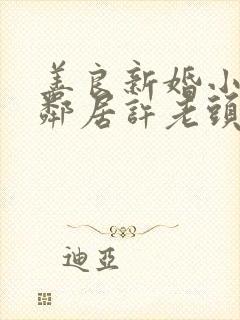 善良新婚小
鄰居許老頭
迪亞